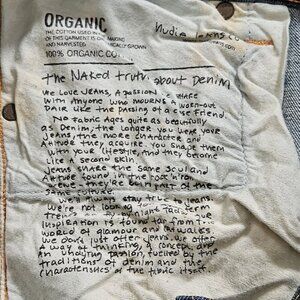 ORGANIC
THE COTTON USED IN
OF THIS GARMENT IS
AND HARVESTED GROWN
100% ORGANIC
Nudie Jeans Co
The Naked truth about Denim
We love Jeans, A passion we share
with Anyone who mourns a worn-out
pair like the passing of a close friend.
No fabric Ages quite as beautifully
as Denim; the longer you wear your
jeans, the more character and
Attitude they acquire. You shape them
with your lifestyle, and they become
like A second skin.
Jeans share the same soul and
attitude found in the rock'n'roll
part of the
same culture.
We'll always stay true to jeans.
We're not looking
trends
Inspiration is found far from the
world of glamour and catwalks
We don't just offer jeans, we offer
a way of thinking, a concept, and
An undying passion, fuelled by the
traditions of denim and the
characteristics of the fabric itself.